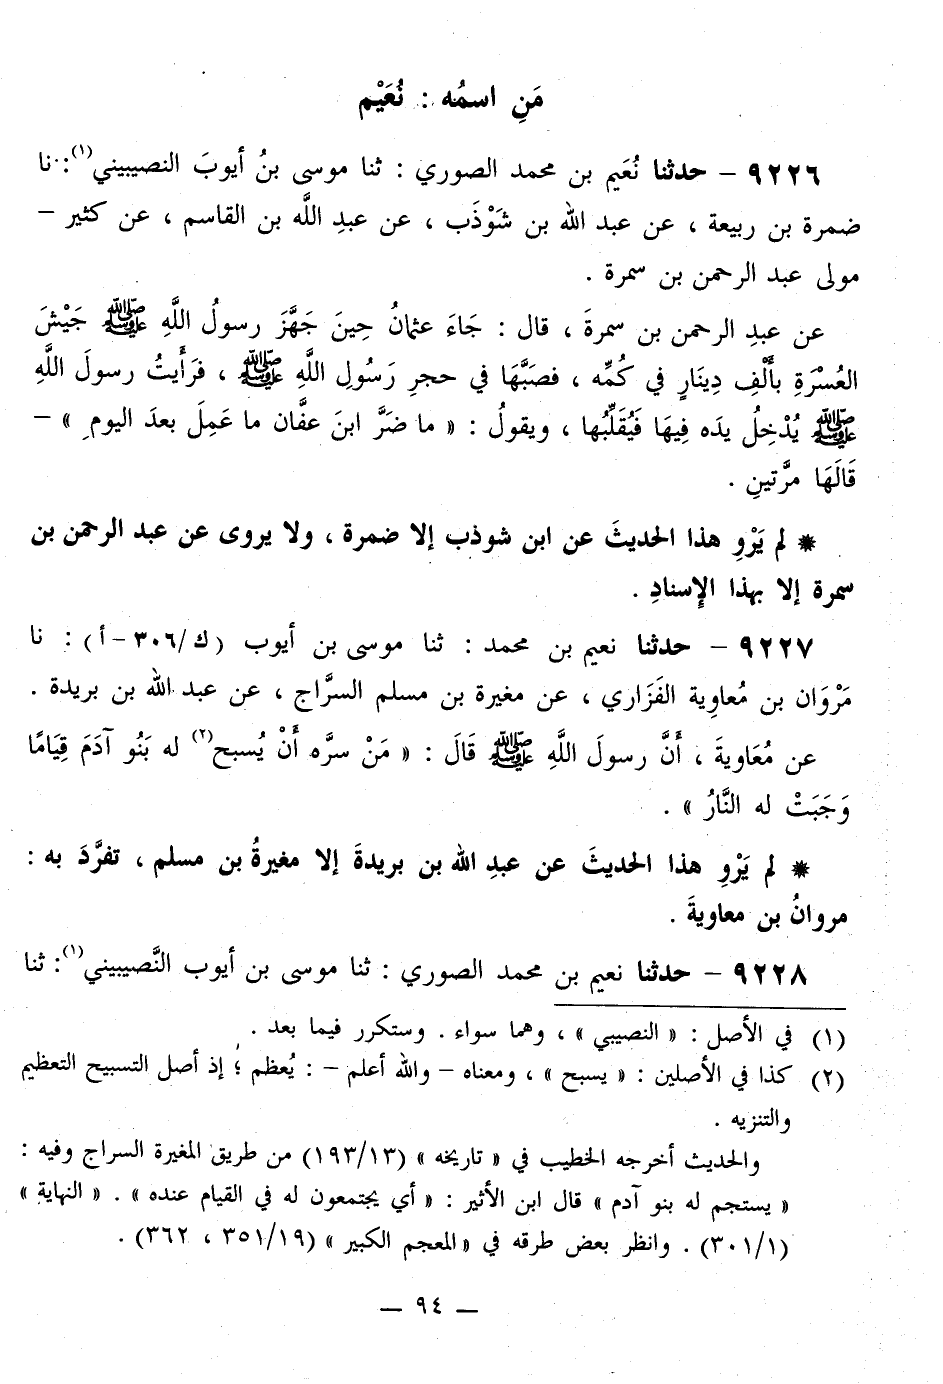 مَنِ اسمُه : نُعَيْم
٩٢٢٦ – حدثنا نُعَيم بن محمد الصوري : ثنا موسى بنُ أيوبَ النصيبيني(١): نا
ضمرة بن ربيعة ، عن عبد الله بن شَوْذَب ، عن عبدِ اللَّه بن القاسم ، عن كثير –
مولى عبد الرحمن بن سمرة .
عن عبدِ الرحمن بن سمرةَ ، قال : جَاءَ عثمانُ حِينَ جَهَّزَ رسولُ اللَّهِ ﷺ جَيْشَ
العُسْرَةِ بأَلْفِ دِينَارٍ في كُمِّه ، فصَبَّهَا في حجرِ رَسُولِ اللَّهِ ﷺ ، فَرَأَيتُ رسولَ اللَّهِ
ﷺ يُدْخِلُ يدَه فِيهَا فَيُقَلِّبُها ، ويقولُ : « ما ضَرَّ ابنَ عفَّان ما عَمِلَ بعدَ اليومِ » –
قَالَهَا مرَّتينِ .
* لم يَرْوِ هذا الحديثَ عن ابن شوذب إلا ضمرة ، ولا يروى عن عبد الرحمن بن
سمرة إلا بهذا الإسنادِ .
٩٢٢٧ – حدثنا نعيم بن محمد : ثنا موسى بن أيوب (ك/٣٠٦–أ) : نا
مَرْوَان بن مُعاوِية الفَزَاري ، عن مغيرة بن مسلم السرَّاج ، عن عبد الله بن بريدة .
عن مُعَاويةَ ، أَنَّ رسولَ اللَّهِ ﷺ قَالَ : « مَنْ سرَّه أَنْ يُسبح(٢) له بَنُو آدَمَ قِيَامًا
وَجَبَتْ له النَّارُ » .
* لم يَرْوِ هذا الحديثَ عن عبدِ الله بن بريدةَ إلا مغيرةُ بن مسلم ، تفرَّدَ به :
مروانُ بن معاويةَ .
٩٢٢٨ – حدثنا نعيم بن محمد الصوري : ثنا موسى بن أيوب النَّصيبيني(١): ثنا
(١) في الأصل : « النصيبي » ، وهما سواء . وستكرر فيما بعد .
(٢) كذا في الأصلين : « يسبح » ، ومعناه – والله أعلم – : يُعظم ؛ إذ أصل التسبيح التعظيم
والتنزيه .
والحديث أخرجه الخطيب في « تاريخه » (١٩٣/١٣) من طريق المغيرة السراج وفيه :
« يستجم له بنو آدم » قال ابن الأثير : « أي يجتمعون له في القيام عنده » . « النهاية »
(٣٠١/١) . وانظر بعض طرقه في « المعجم الكبير » (٣٥١/١٩ ، ٣٦٢) .
— ٩٤ —